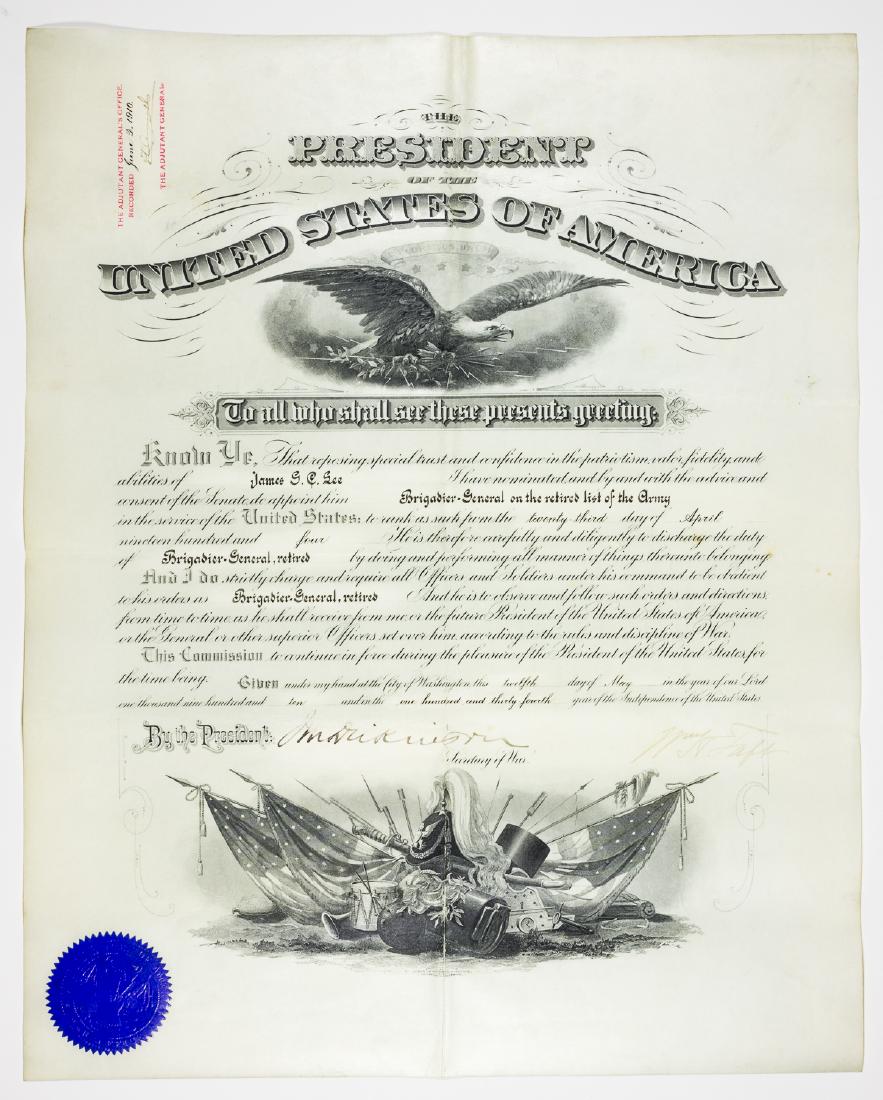 THE ADJUTANT GENERAL'S OFFICE.
RECORDED June 3, 1910.
THE ADJUTANT GENERAL
THE
PRESIDENT
OF THE
UNITED STATES OF AMERICA
To all who shall see these presents greeting:
Know Ye, That reposing special trust and confidence in the patriotism, valor, fidelity, and
abilities of James G. C. Lee I have nominated, and by and with the advice and
consent of the Senate, do appoint him Brigadier-General on the retired list of the Army
in the service of the United States: to rank as such from the twenty-third day of April
nineteen hundred and four . He is therefore carefully and diligently to discharge the duty
of Brigadier-General, retired by doing and performing all manner of things thereunto belonging.
And I do strictly charge and require all Officers and Soldiers under his command to be obedient
to his orders as Brigadier-General, retired . And he is to observe and follow such orders and directions,
from time to time, as he shall receive from me, or the future President of the United States of America,
or the General or other superior Officers set over him, according to the rules and discipline of War.
This Commission to continue in force during the pleasure of the President of the United States, for
the time being. Given under my hand at the City of Washington, this twelfth day of May in the year of our Lord
one thousand nine hundred and ten and in the one hundred and thirty fourth year of the Independence of the United States.
By the President: J M Dickinson Wm H Taft
Secretary of War.